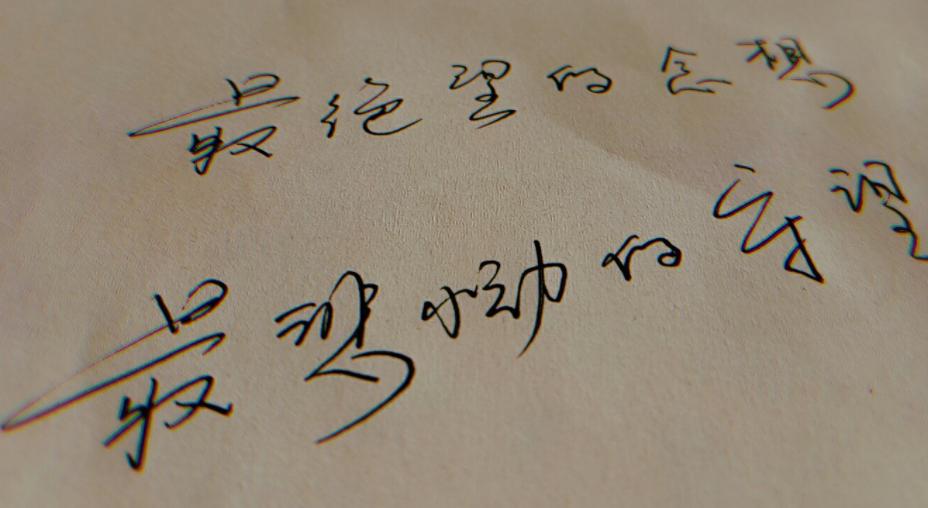 最绝望的念想
最悲恸的守望